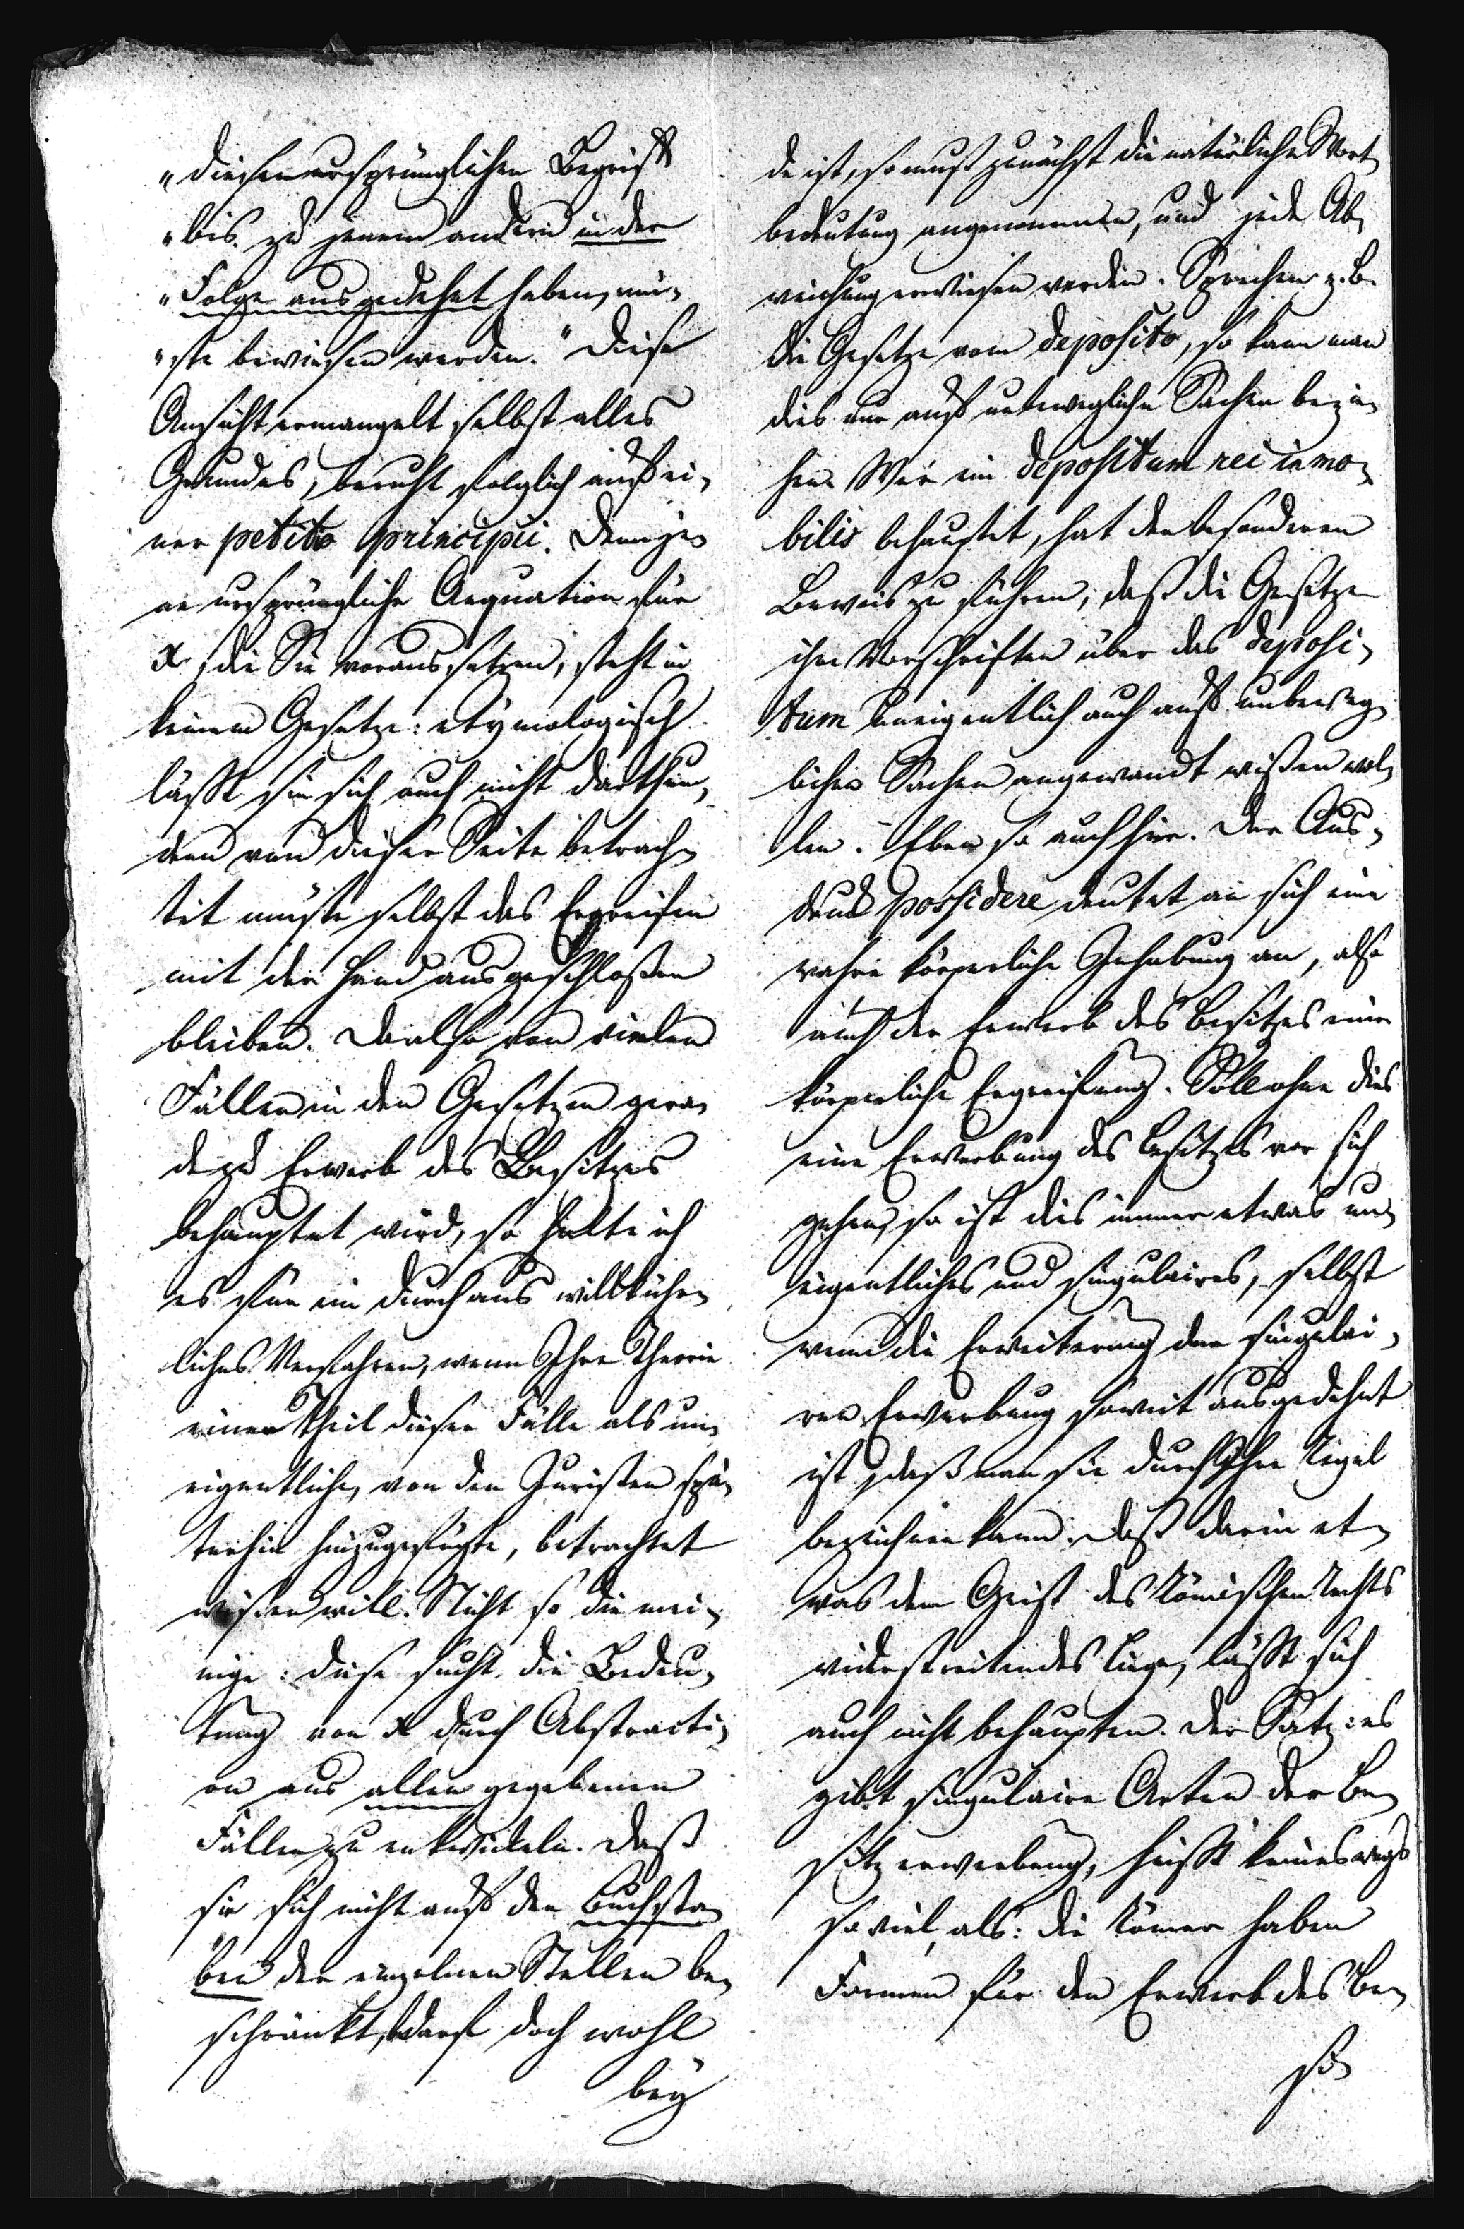 „diesen ursprünglichen Begriff
„bis zu jenem andern in der
„Folge ausgedehnt haben, mü-
„ste bewiesen werden.“ Diese
Ansicht ermangelt selbst alles
Grundes, beruht folglich auf ei-
ner petitio principii. Denn je-
ne ursprüngliche Aequation für
x, die Sie voraussetzen, steht in
keinem Gesetze: etymologisch
läßt sie sich auch nicht darthun,
denn von dieser Seite betrach-
tet müste selbst das Ergreifen
mit der Hand ausgeschloßen
bleiben. Da also von vielen
Fällen in den Gesetzen gera-
dezu Erwerb des Besitzes
behauptet wird, so halte ich
es für ein durchaus willkühr-
liches Verfahren, wenn Ihre Theorie
einen Theil dieser Fälle als un-
eigentliche, von den Juristen spä-
terhin hinzugefügte, betrachtet
wißen will. Nicht so die mei-
nige: diese sucht die Bedeu-
tung von x durch Abstracti-
on aus allen gegebenen
Fällen zu entwickeln. Daß
sie sich nicht auf den Buchsta-
ben der einzelnen Stellen be-
schränkt, darf doch wohl
bey
de ist, so muß zunächst die natürliche Wort-
bedeutung angenommen, und jede Ab-
weichung erwiesen werden. Sprechen z. B.
die Gesetze vom deposito, so kann man
dies nur auf bewegliche Sachen bezie-
hen. Wer ein depositum rei immo-
bilis behauptet, hat den besonderen
Beweis zu führen, daß die Gesetze
ihre Vorschriften über das deposi-
tum uneigentlich auch auf unbeweg-
liche Sachen angewandt wißen wol-
len. – Eben so auch hier. Der Aus-
druck possidere deutet an sich eine
wahre körperliche Inhabung an, also
auch der Erwerb des Besitzes eine
körperliche Ergreifung. Soll ohne dies
eine Erwerbung des Besitzes vor sich
gehen, so ist dies immer etwas un-
eigentliches und singulaires, selbst
wenn die Erweiterung der singulai-
ren Erwerbung soweit ausgedehnt
ist, daß man sie durch Ihre Regel
bezeichnen kann. Daß darin et-
was dem Geist des Römischen Rechts
widerstreitendes liege, läßt sich
auch nicht behaupten. Der Satz: es
gibt singulaire Arten der Be-
sitzerwerbung, heißt keineswegs
so viel, als: die Römer haben
Formen für den Erwerb des Be-